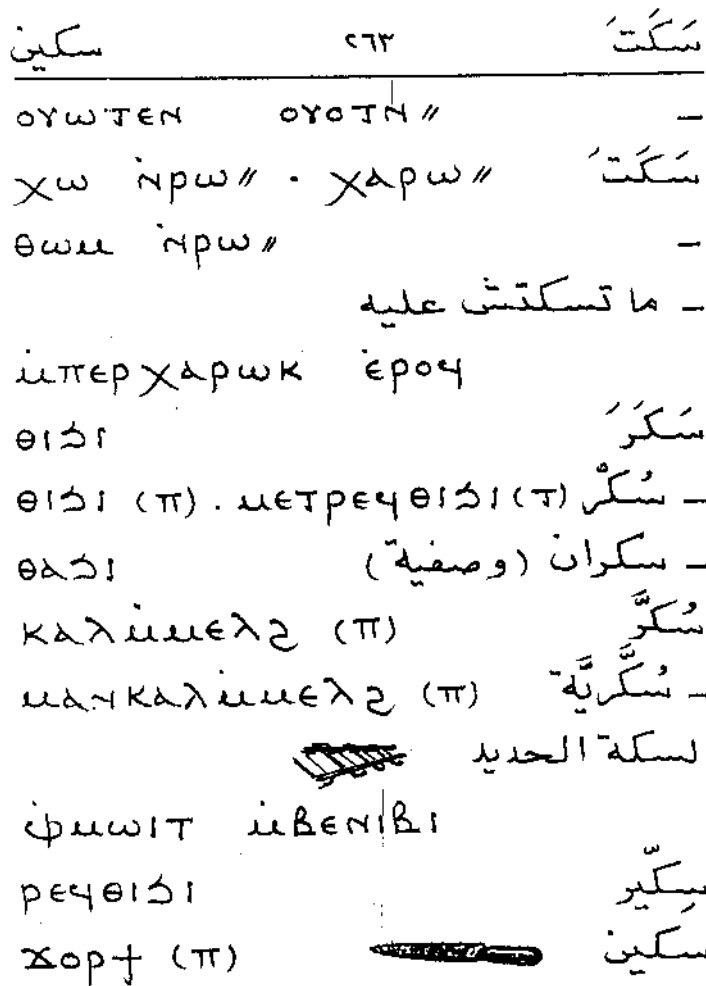 سَكَتَ ٢٦٣ سكين
– ⲟⲩⲱⲧⲉⲛ ⲟⲩⲟⲧⲛ〃
سَكَتَ ⲭⲱ ⲛ̇ⲣⲱ〃 · ⲭⲁⲣⲱ〃
– ⲑⲱⲙ ⲛ̇ⲣⲱ〃
– ما تسكتش عليه
ⲙ̇ⲡⲉⲣⲭⲁⲣⲱⲕ ⲉ̇ⲣⲟϥ
سَكَرَ ⲑⲓϧⲓ
– سُكْر ⲑⲓϧⲓ (ⲡ) . ⲙⲉⲧⲣⲉϥⲑⲓϧⲓ (ⲧ)
– سكران (وصفية) ⲑⲁϧⲓ
سُكَّر ⲕⲁⲗⲙ̇ⲙⲉⲗϩ (ⲡ)
– سُكَّريَّة ⲙⲁⲛⲕⲁⲗⲙ̇ⲙⲉⲗϩ (ⲡ)
لسكة الحديد
ⲫ̇ⲙⲱⲓⲧ ⲙ̇ⲃⲉⲛⲓⲃⲓ
سِكّير ⲣⲉϥⲑⲓϧⲓ
سكين ϫⲟⲣϯ (ⲡ)